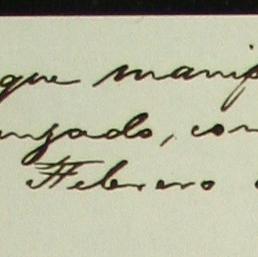 que manip
nzado, con
Febrero